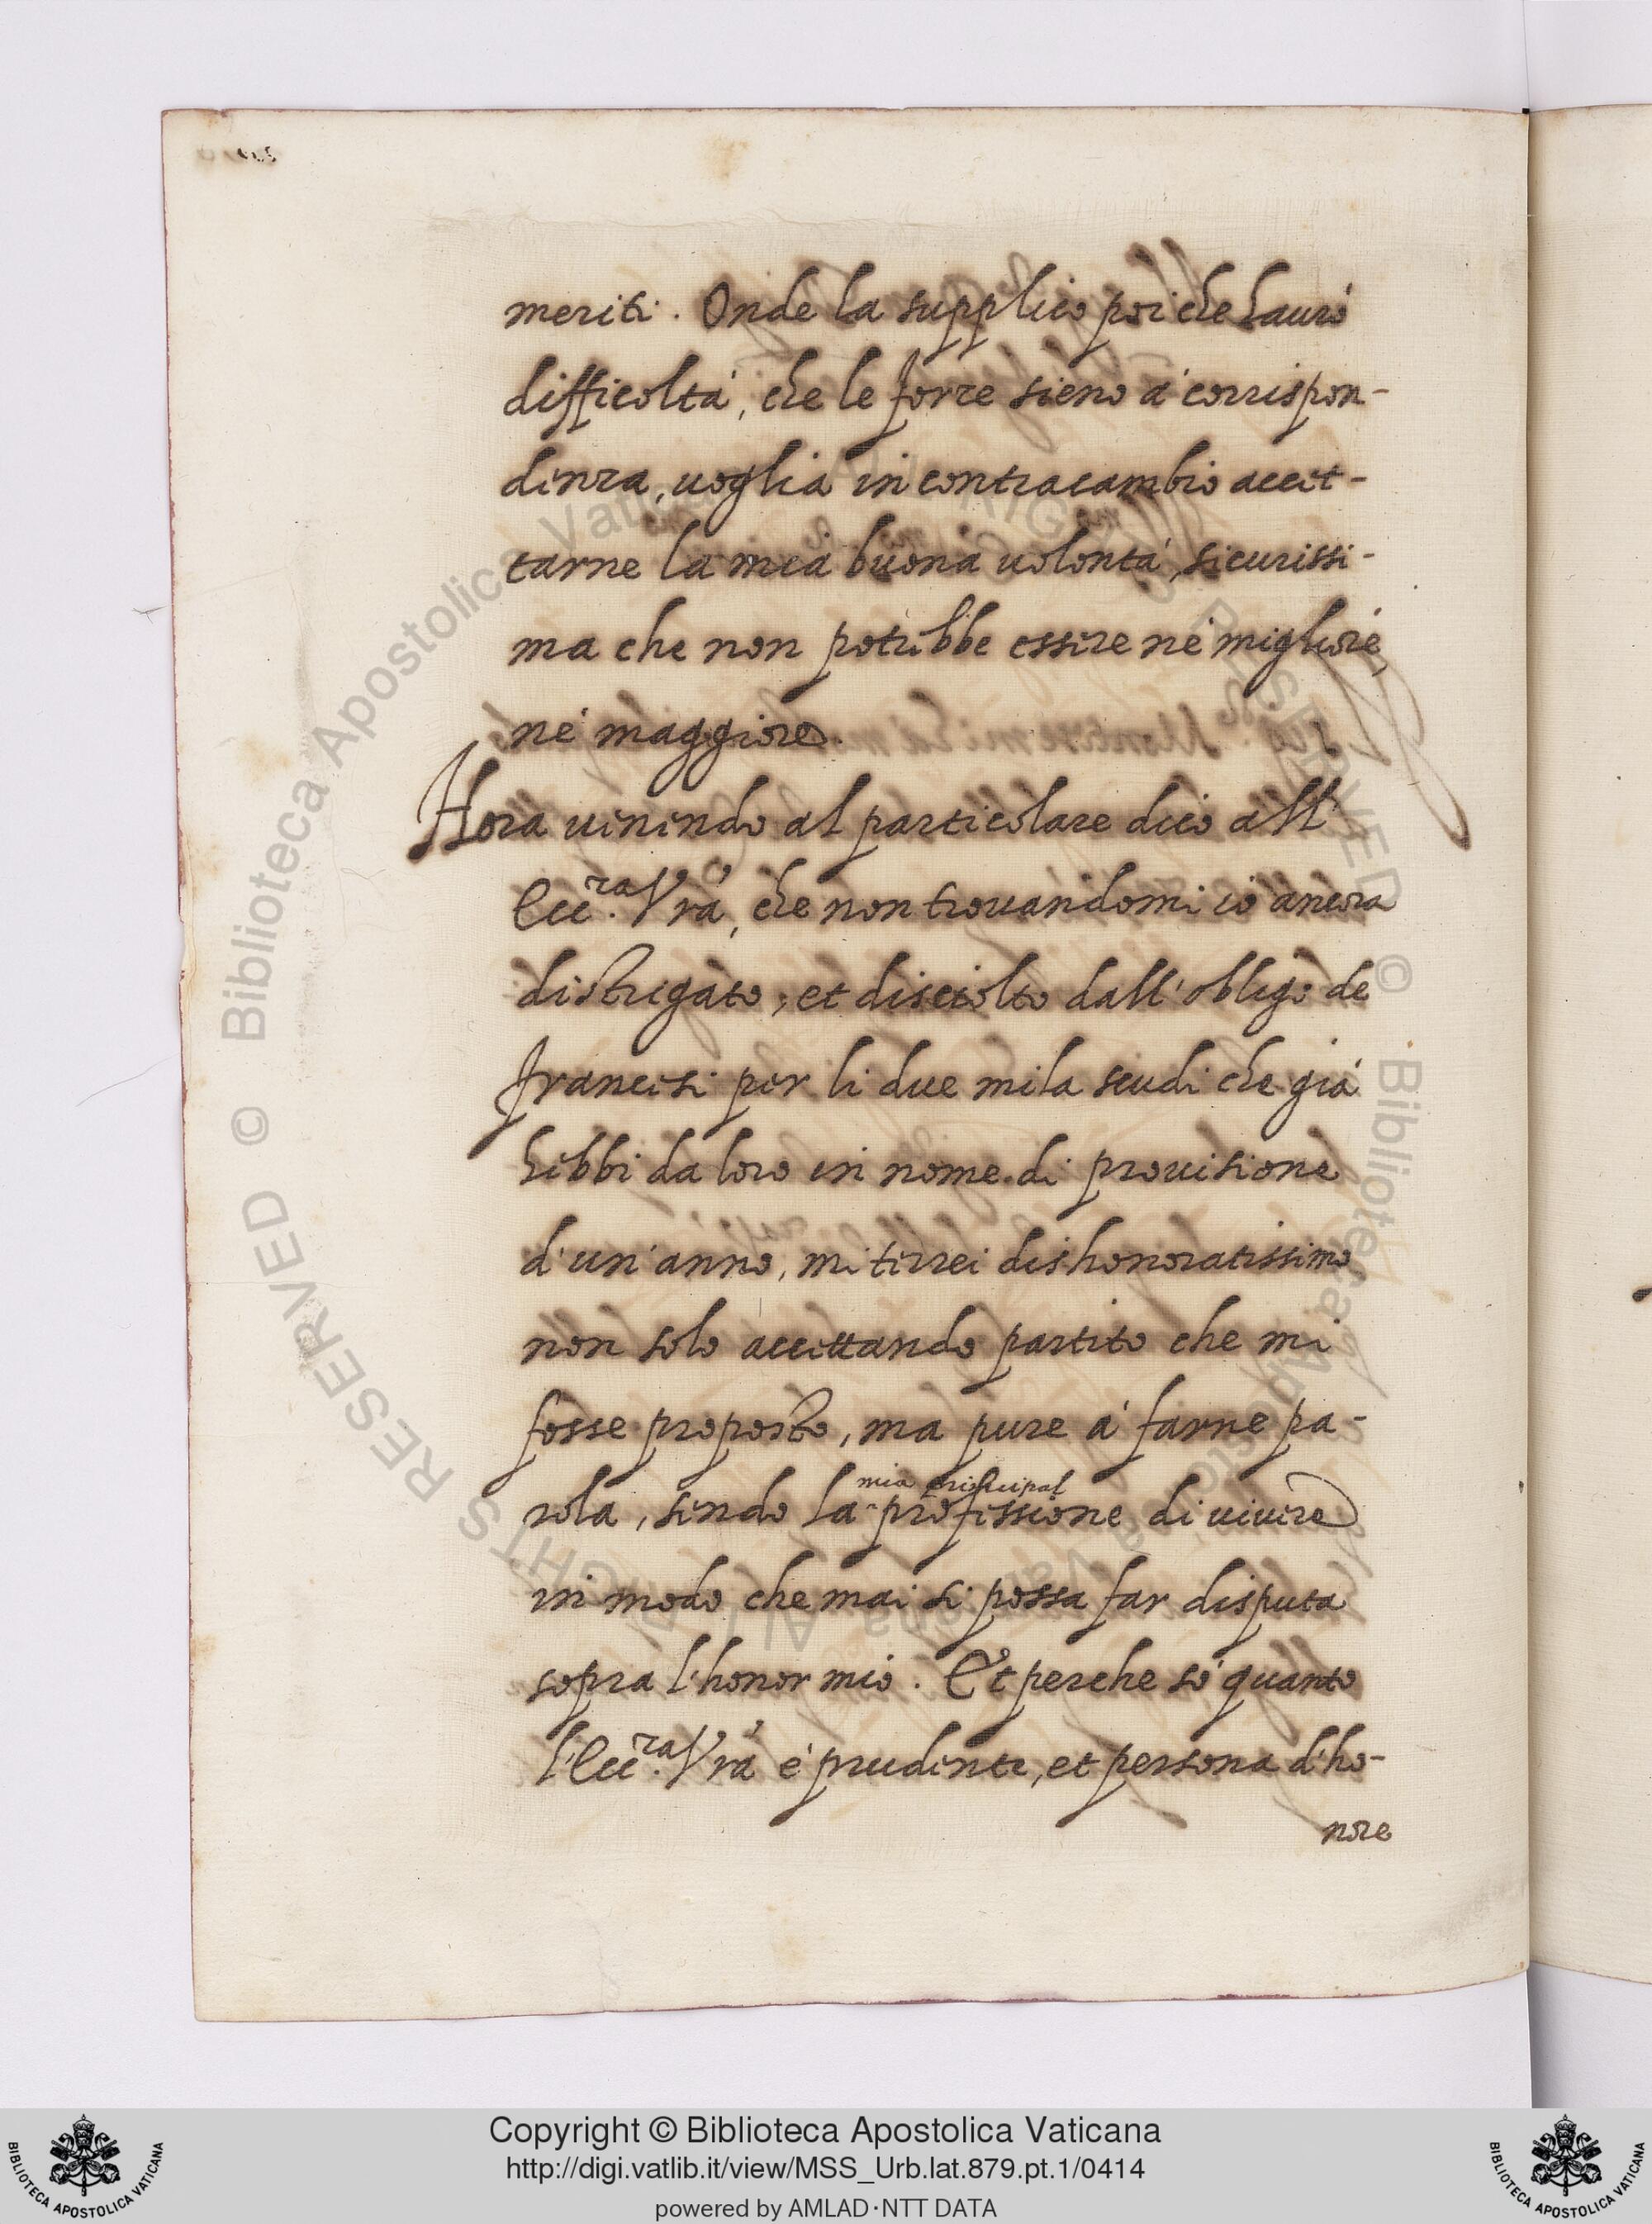 meriti. Onde la supplico poi che haurò
difficoltà, che le forze sieno à corrispon-
denza, uoglia in contracambio accet-
tarne la mia buona uolontà, sicurissi-
ma che non potrebbe essere nè migliore,
nè maggiore.
Hora uenendo al particolare dico all'
Ecc.za Vra, che non trouandomi io ancora
distrigato, et disciolto dall'obligo de
francesi per li due mila scudi che già
hebbi da loro in nome di prouisione
d'un'anno, mi terrei dishonoratissimo
non solo accettando partito che mi
fosse proposto, ma pure à farne pa-
mia principal
rola, sendo la ^ professione di uiuere
in modo che mai si possa far disputa
sopra l'honor mio. Et perche sò quanto
l'Ecc.za Vra è prudente, et persona d'ho-
nore
Copyright © Biblioteca Apostolica Vaticana
http://digi.vatlib.it/view/MSS_Urb.lat.879.pt.1/0414
powered by AMLAD·NTT DATA
BIBLIOTECA APOSTOLICA VATICANA
BIBLIOTECA APOSTOLICA VATICANA
© Biblioteca Apostolica Vaticana ALL RIGHTS RESERVED
© Biblioteca Apostolica Vaticana ALL RIGHTS RESERVED